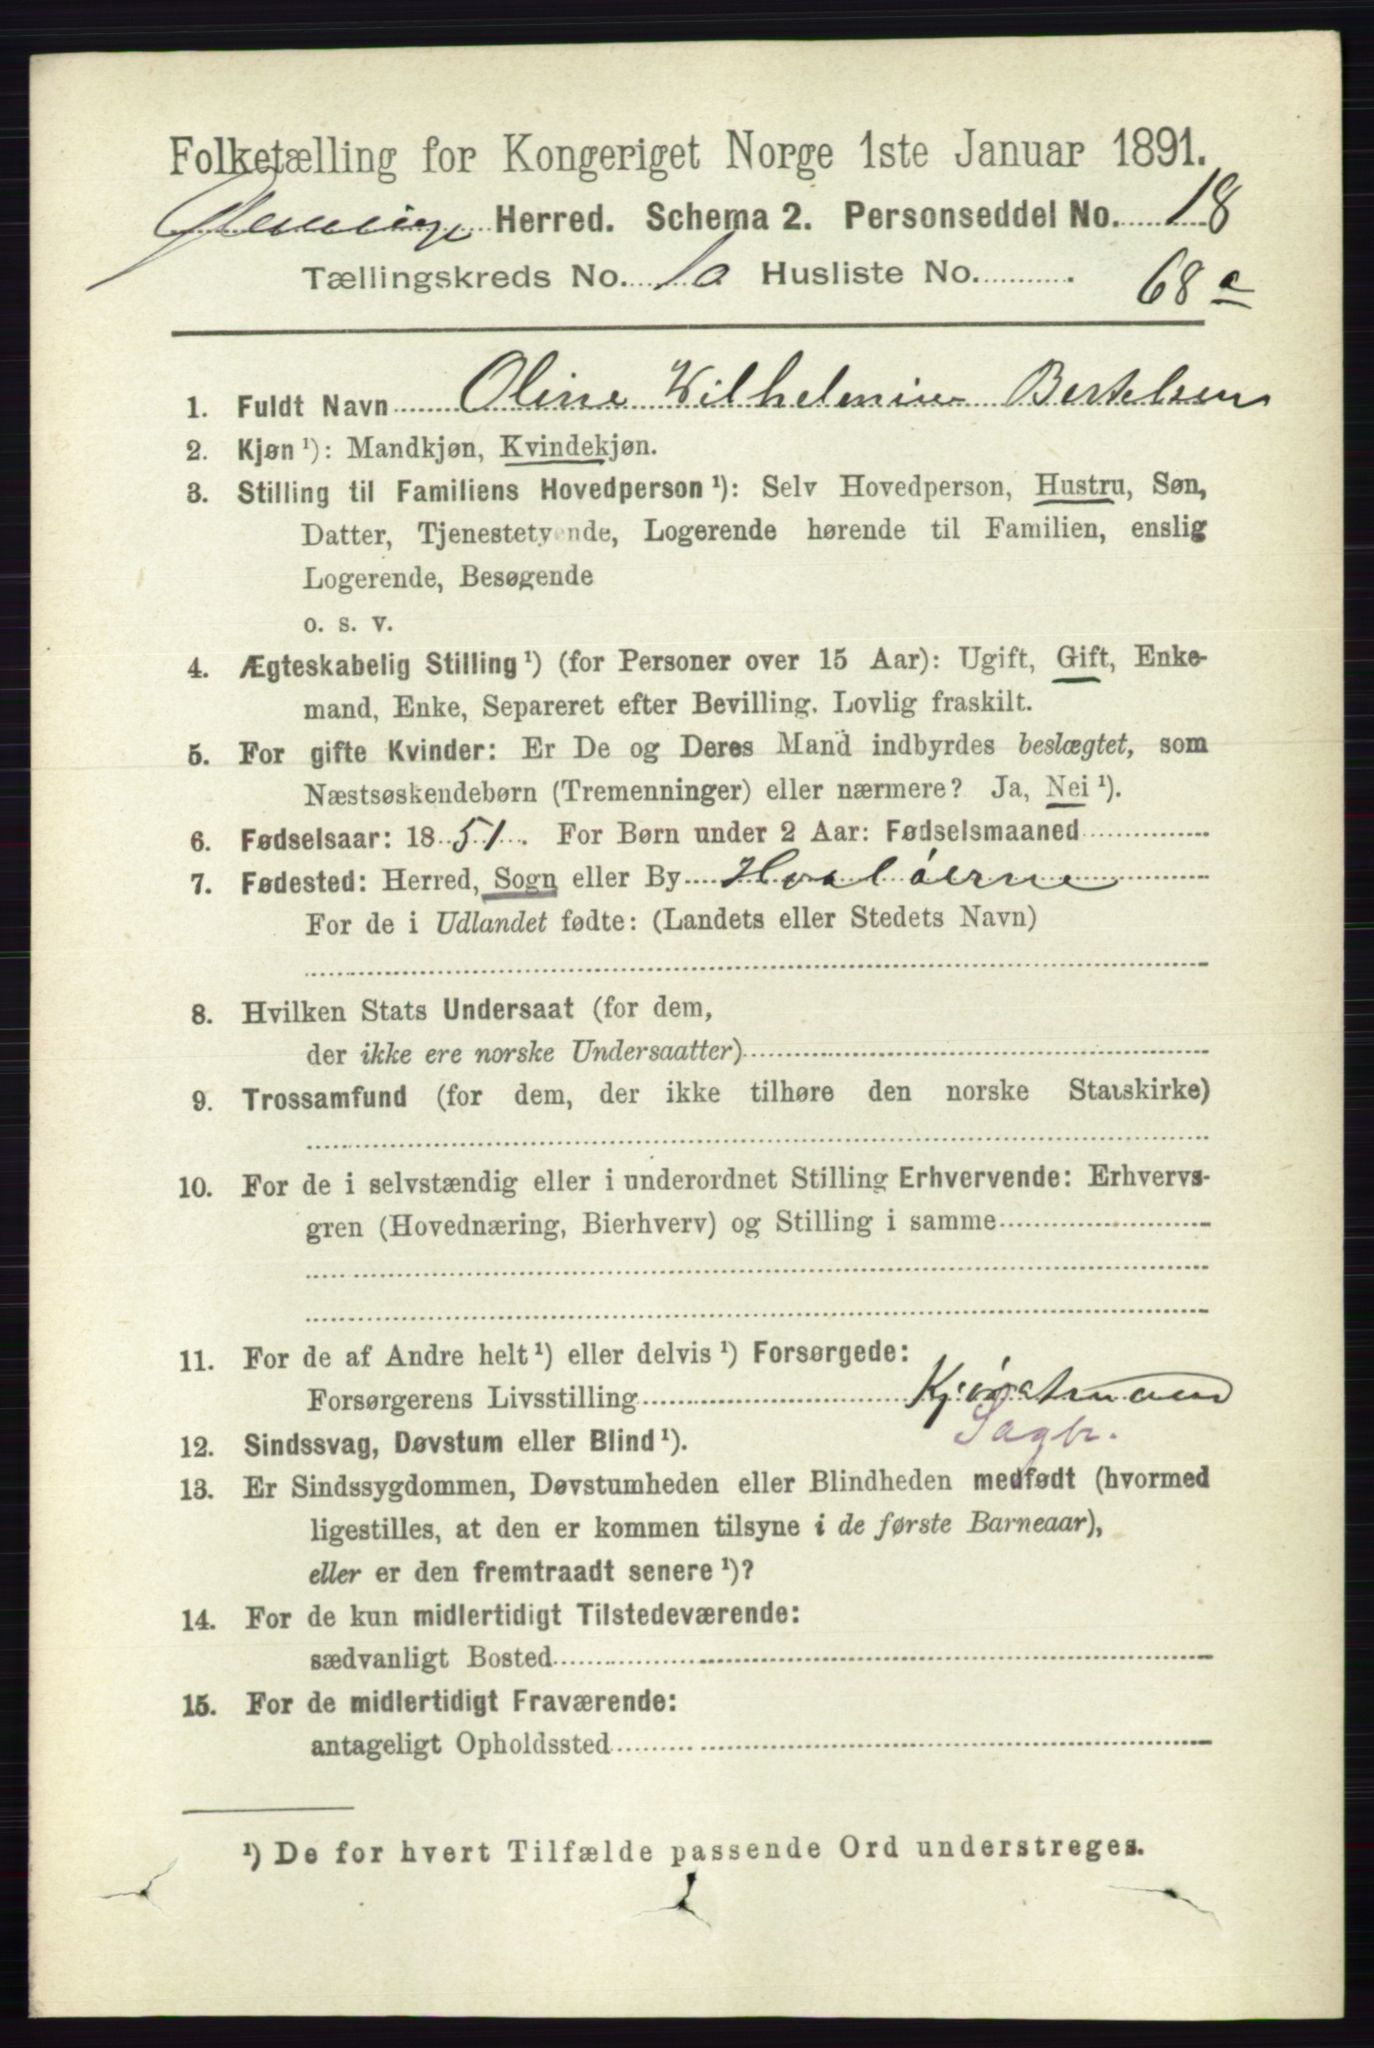 Folketælling for Kongeriget Norge 1ste Januar 1891.
Glemminge Herred. Schema 2. Personseddel No. 18
Tællingskreds No. 10 Husliste No. 68 a
1. Fuldt Navn Oline Wilhelmine Bertelsen
2. Kjøn ¹): Mandkjøn, Kvindekjøn.
3. Stilling til Familiens Hovedperson ¹): Selv Hovedperson, Hustru, Søn,
Datter, Tjenestetyende, Logerende hørende til Familien, enslig
Logerende, Besøgende
o. s. v.
4. Ægteskabelig Stilling ¹) (for Personer over 15 Aar): Ugift, Gift, Enke-
mand, Enke, Separeret efter Bevilling. Lovlig fraskilt.
5. For gifte Kvinder: Er De og Deres Mand indbyrdes beslægtet, som
Næstsøskendebørn (Tremenninger) eller nærmere? Ja, Nei ¹).
6. Fødselsaar: 1851. For Børn under 2 Aar: Fødselsmaaned
7. Fødested: Herred, Sogn eller By Hvaløerne
For de i Udlandet fødte: (Landets eller Stedets Navn)
8. Hvilken Stats Undersaat (for dem,
der ikke ere norske Undersaatter)
9. Trossamfund (for dem, der ikke tilhøre den norske Statskirke)
10. For de i selvstændig eller i underordnet Stilling Erhvervende: Erhvervs-
gren (Hovednæring, Bierhverv) og Stilling i samme
11. For de af Andre helt ¹) eller delvis ¹) Forsørgede:
Forsørgerens Livsstilling Kjørstmand
Sagbr.
12. Sindssvag, Døvstum eller Blind ¹).
13. Er Sindssygdommen, Døvstumheden eller Blindheden medfødt (hvormed
ligestilles, at den er kommen tilsyne i de første Barneaar),
eller er den fremtraadt senere ¹)?
14. For de kun midlertidigt Tilstedeværende:
sædvanligt Bosted
15. For de midlertidigt Fraværende:
antageligt Opholdssted
¹) De for hvert Tilfælde passende Ord understreges.